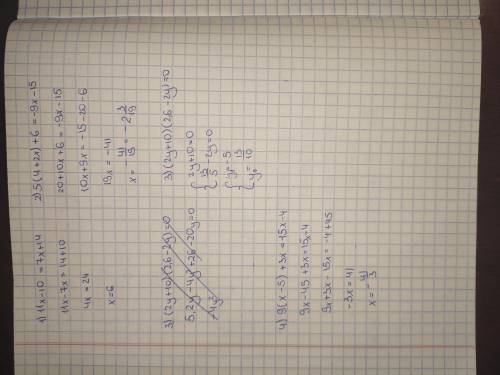 1) 11x-10 = 7x+14
11x-7x = 14+10
4x = 24
x=6
2) 5(4+2x)+6 = -9x-15
20+10x+6 = -9x-15
10x+9x = -15-20-6
19x = -41
x = -41/19 = -2 3/19
3) (2y+10)(2,6-2y)=0
5,2y-4y²+26-20y=0
-4y²
3) (2y+10)(2,6-2y)=0
{ 2y+10=0
{ 13/5 -2y=0
{ y=-5
{ y= 13/10
4) 9(x-5)+3x=15x-4
9x-45+3x=15x-4
9x+3x-15x=-4+45
-3x=41
x=-41/3